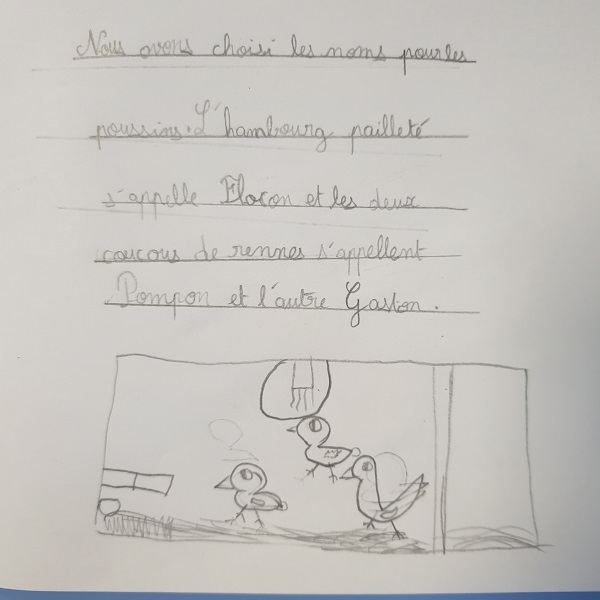 Nous avons choisi les noms pour les
poussins. L'hambourg pailleté
s'appelle Flocon et les deux
coucous de rennes s'appellent
Pompon et l'autre Gaston.